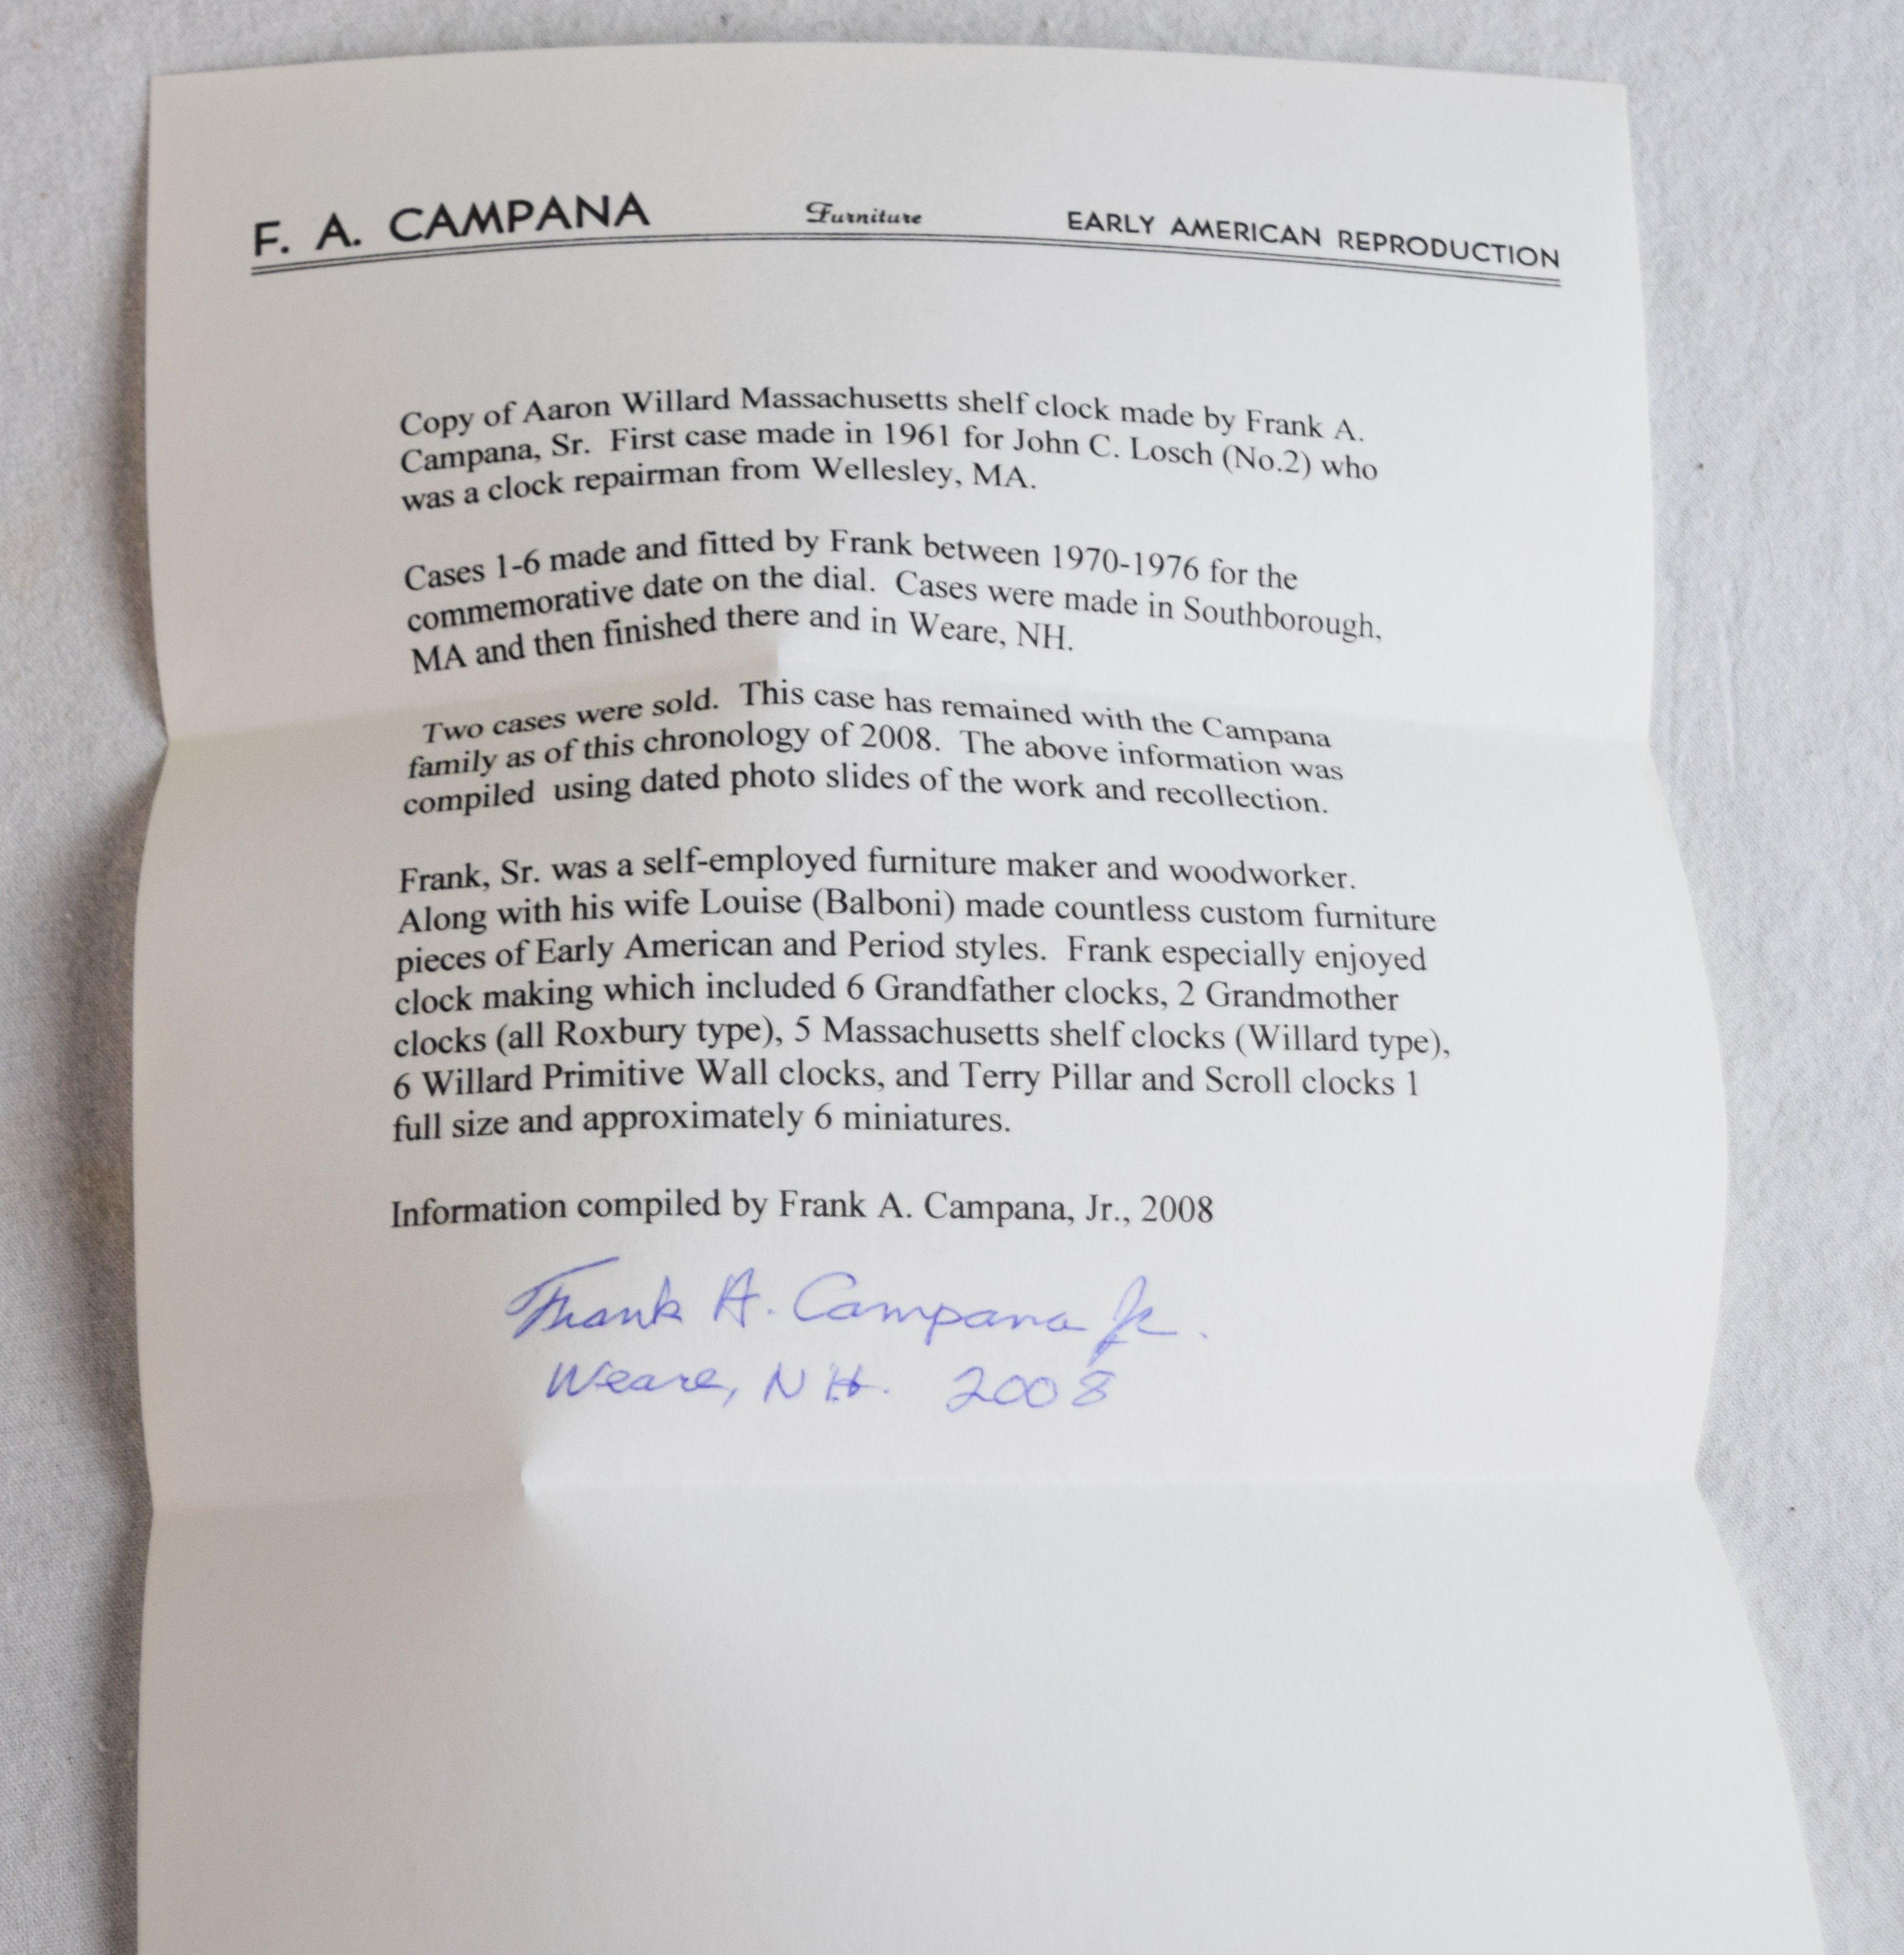 F. A. CAMPANA Furniture EARLY AMERICAN REPRODUCTION
Copy of Aaron Willard Massachusetts shelf clock made by Frank A.
Campana, Sr. First case made in 1961 for John C. Losch (No.2) who
was a clock repairman from Wellesley, MA.
Cases 1-6 made and fitted by Frank between 1970-1976 for the
commemorative date on the dial. Cases were made in Southborough,
MA and then finished there and in Weare, NH.
Two cases were sold. This case has remained with the Campana
family as of this chronology of 2008. The above information was
compiled using dated photo slides of the work and recollection.
Frank, Sr. was a self-employed furniture maker and woodworker.
Along with his wife Louise (Balboni) made countless custom furniture
pieces of Early American and Period styles. Frank especially enjoyed
clock making which included 6 Grandfather clocks, 2 Grandmother
clocks (all Roxbury type), 5 Massachusetts shelf clocks (Willard type),
6 Willard Primitive Wall clocks, and Terry Pillar and Scroll clocks 1
full size and approximately 6 miniatures.
Information compiled by Frank A. Campana, Jr., 2008
Frank A. Campana Jr.
Weare, NH. 2008